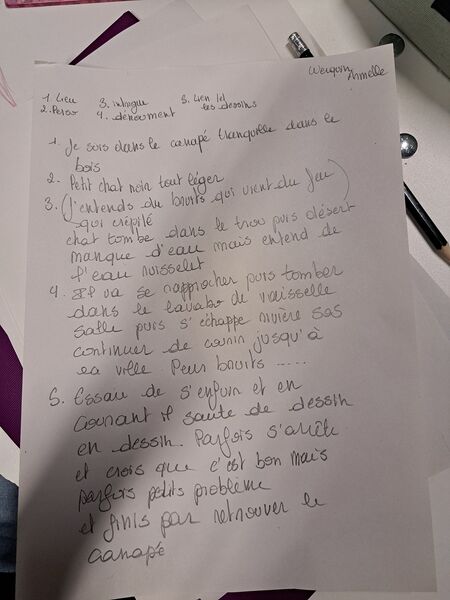 Werquin
Armelle
1. Lieu 3. intrigue 5. Lien tel
2. Perso 4. dénouement les dessins
1. Je suis dans le canapé tranquille dans le
bois
2. Petit chat noir tout léger
3. (J'entends du bruits qui vient du feu)
qui crépite
chat tombe dans le trou puis désert
manque d'eau mais entend de
l'eau ruisselet
4. Il va se rapprocher puis tomber
dans le lavabo de vaisselle
salle puis s'échappe rivière sas
continuer de courir jusqu'à
la ville. Peur bruits .....
5. Essaie de s'enfuir et en
courant il saute de dessin
en dessin. Parfois s'arrête
et crois que c'est bon mais
parfois petits problème
et finis par retrouver le
canapé